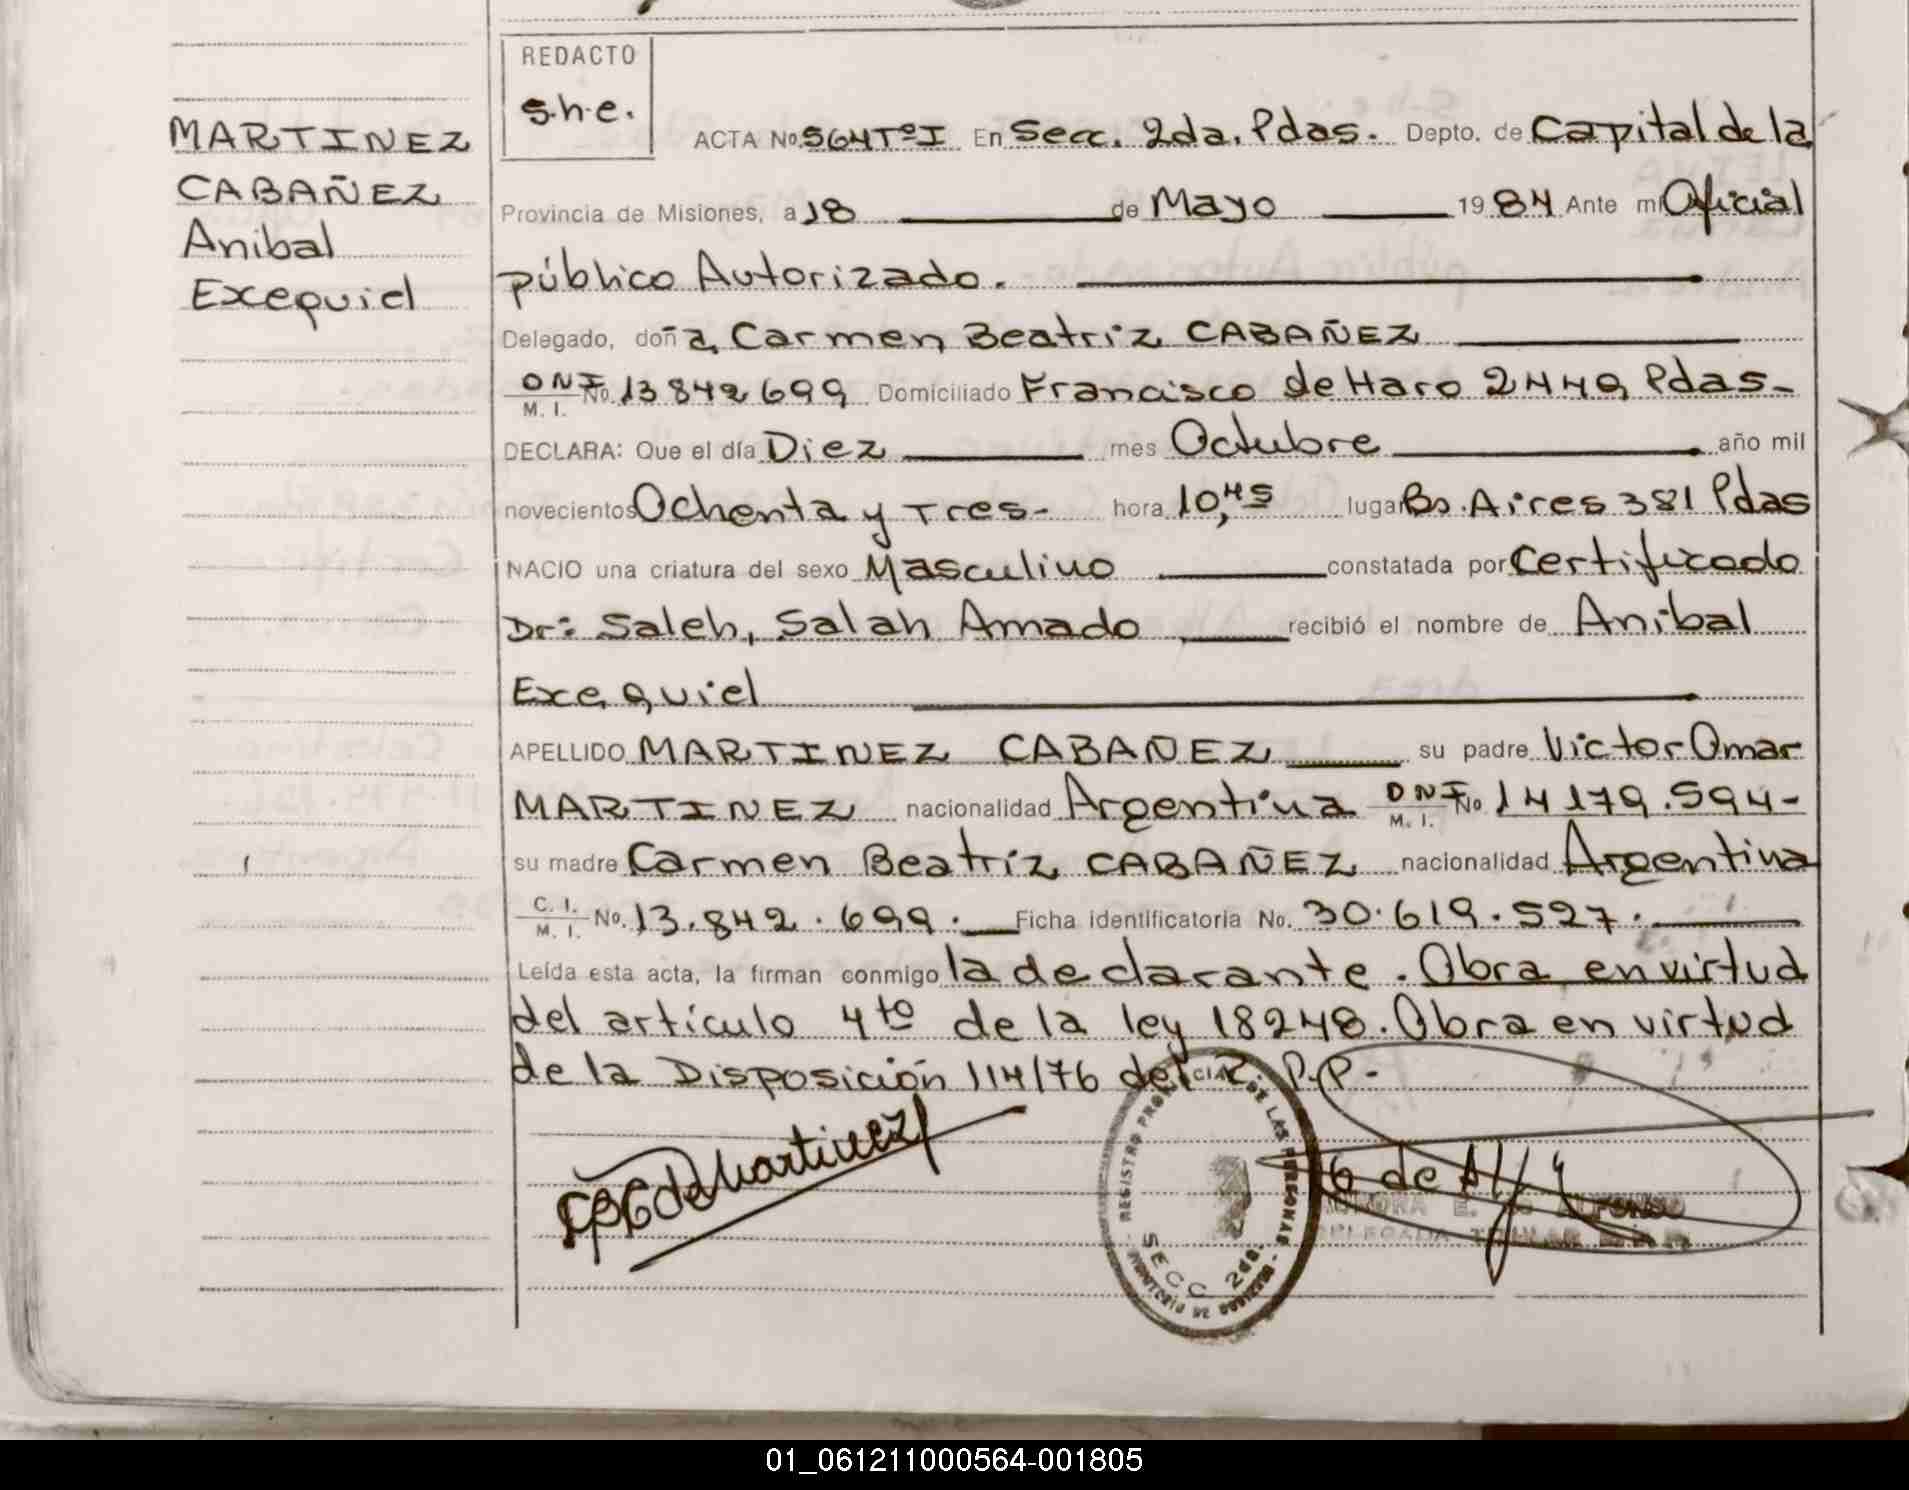 REDACTO
s.h.e.
MARTINEZ
CABAÑEZ
Anibal
Exequiel
ACTA No. 564 Tº I En Secc. 2da. Pdas. Depto. de Capital de la
Provincia de Misiones, a 18 de Mayo 1984 Ante mi Oficial
público Autorizado.
Delegado, doña Carmen Beatriz CABAÑEZ
DNI M. I. No. 13842699 Domiciliado Francisco de Haro 2449 Pdas-
DECLARA: Que el día Diez mes Octubre año mil
novecientos Ochenta y Tres- hora 10,45 lugar Bs. Aires 381 Pdas
NACIO una criatura del sexo Masculino constatada por Certificado
Dr: Saleh, Salah Amado recibió el nombre de Anibal
Exequiel
APELLIDO MARTINEZ CABAÑEZ su padre Victor Omar
MARTINEZ nacionalidad Argentina DNI M. I. No. 14179.594-
su madre Carmen Beatriz CABAÑEZ nacionalidad Argentina
C. I. M. I. No. 13.842.699. Ficha identificatoria No. 30.619.527.
Leída esta acta, la firman conmigo la declarante. Obra en virtud
del artículo 4to de la ley 18248. Obra en virtud
de la Disposición 114/76 del R. P.P.-
de Martinez
REGISTRO PROVINCIAL DE LAS PERSONAS - MINISTERIO DE GOBIERNO -
SECC 2da.
G de Alf
AURORA E. de ALFONSO
DELEGADA TITULAR
01_061211000564-001805